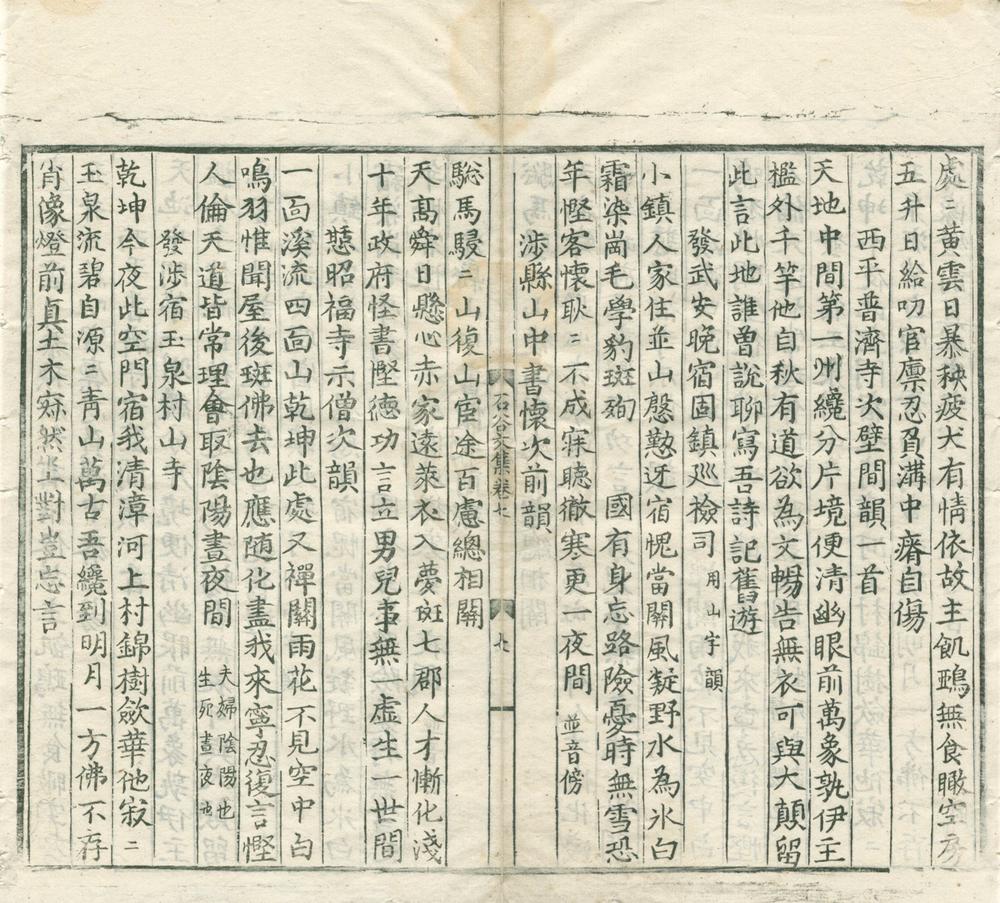 處〻黃雲日暴秧疲犬有情依故主飢鵶無食瞰空房
五升日給叨官廪忍負溝中瘠自傷
西平普濟寺次壁間韻二首
天地中間第一州纔分片境便清幽眼前萬象孰伊主
檻外千竿他自秋有道欲為文暢告無衣可與大顛留
此言此地誰曽說聊寫吾詩記舊遊
發武安晚宿固鎮廵檢司 用山字韻
小鎮人家住並山慇懃迓宿愧當關風凝野水為氷白
霜染崗毛學豹斑殉國有身忘路險憂時無雪恐
年慳客懷耿〻不成寐聴徹寒更一夜間 並音傍
渉縣山中書懷次前韻
石谷文集卷七 九
驄馬駸〻山復山宦途百慮總相關
天髙舜日懸心赤家遠萊衣入夢斑七郡人才慚化淺
十年政府怪書慳德功言立男兒事無一虚生一世間
憇昭福寺示僧次韻
一靣溪流四靣山乾坤此處又禪關雨花不見空中白
鳴羽惟聞屋後斑佛去也應随化盡我來寧忍復言慳
人倫天道皆常理會取陰陽晝夜間 夫婦陰陽也生死晝夜也
發渉宿玉泉村山寺
乾坤今夜此空門宿我清漳河上村錦樹歛華他寂〻
玉泉流碧自源〻青山萬古吾纔到明月一方佛不存
肖像燈前真土木寂然坐對豈忘言